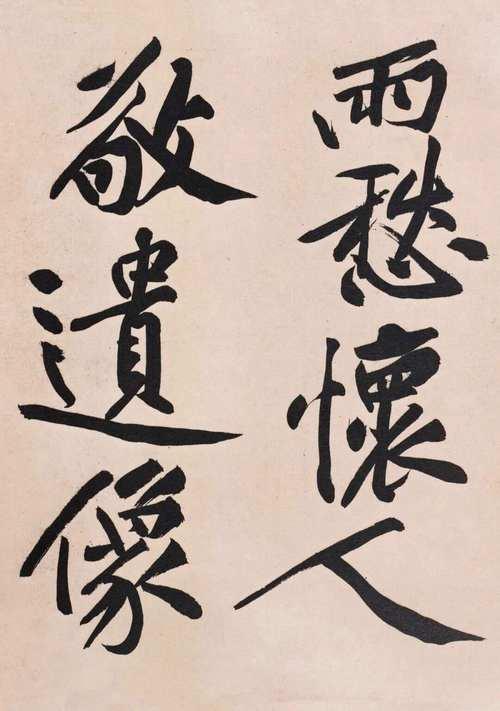 雨愁懷人
敬遺像